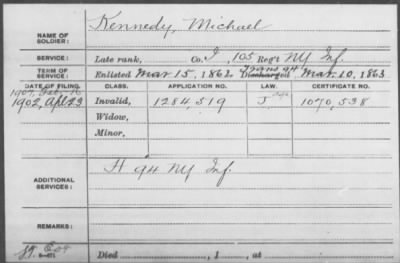 NAME OF SOLDIER: Kennedy, Michael
SERVICE: Late rank, Co. I, 105 Reg't NY Inf.
TERM OF SERVICE: Enlisted Mar 15, 1862 Discharged Mar. 10, 1863
Trans 94
DATE OF FILING. CLASS. APPLICATION NO. LAW. CERTIFICATE NO.
1907, Feb. 16
1902, Apl 23 Invalid, 1284,519 J 1070,538
Widow,
Minor,
ADDITIONAL SERVICES: H 94 NY Inf.
REMARKS:
Died , 1 , at